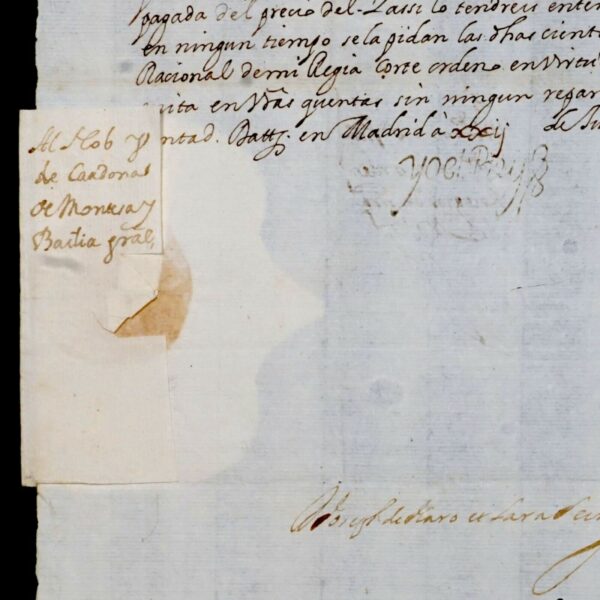 pagada del precio del Passi lo tendreis enten
en ningun tiempo se la pidan las dhas cient
Racional de mi Regia Corte ordeno en virtu
quita en vrãs quentas sin ningun
ntad. Datt. en Madrid à xxij de Ju
YO EL REY
Al Nob y
de Cardonas
de Montesa y
Bailia gral,
Joseph de Haro et Lara